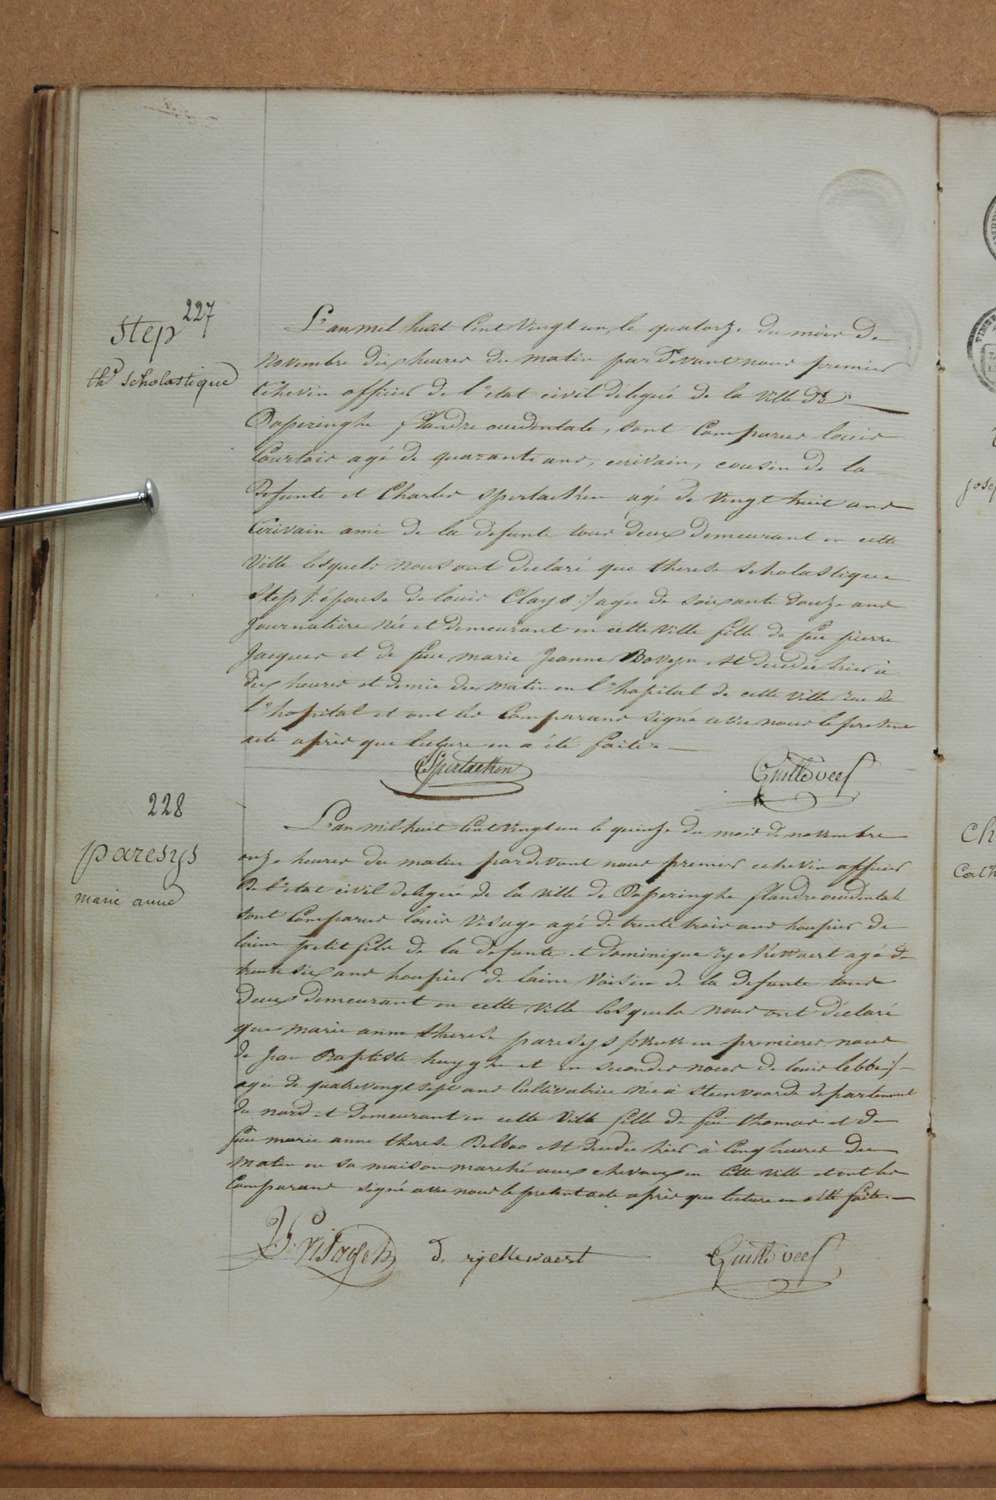 227
Step
th.se scholastique
L'an mil huit Cent Vingt un, le quatorze du mois de
Novembre dix heures du matin par Devant nous premier
Echevin officier de l'etat civil délégué de la Ville de
Poperinghe flandre occidentale, sont Comparus louis
Courtois agé de quarante ans, écrivain, cousin de la
Defunte et Charles Spertaelken agé de Vingt huit ans
Ecrivain ami de la defunte tous deux demeurant en cette
Ville lesquels nous ont declaré que therese scholastique
Step /: epouse de louis Clays :/ agée de soixante douze ans
Journalière née et demeurant en cette Ville fille de feu pierre
Jacques et de feue marie Jeanne Boveyn est decedée hier à
dix heures et demie du matin en l'hopital de cette Ville rue de
l'hopital et ont les Comparans signé avec nous le present
acte après que lecture en a été faite.
Spertaelken
Guilloveel
228
paresys
marie anne
L'an mil huit Cent vingt un le quinze du mois de novembre
onze heures du matin pardevant nous premier echevin officier
De l'etat civil delegué de la Ville de Poperinghe flandre occidentale
sont Comparus louis Visage agé de trente trois ans houpier de
laine petit fils de la defunte et Dominique Ryckewaert agé de
trente six ans houpier de laine Voisin de la defunte tous
Deux demeurant en cette Ville lesquels nous ont déclaré
que marie anne therese paresys /: Veuve en premieres noces
de Jean Baptiste huyghe et en secondes noces de louis lebbe :/
agée de quatrevingt sept ans Cultivatrice née à Steenvoorde departement
du nord et demeurant en cette Ville fille de feu thomas et de
feue marie anne therese Belbao est decedée hier à Cinq heures du
matin en sa maison marché aux chevaux en Cette Ville et ont les
Comparans signé avec nous le present acte après que lecture en a été faite.
D. ryckewaert
Guilloveel